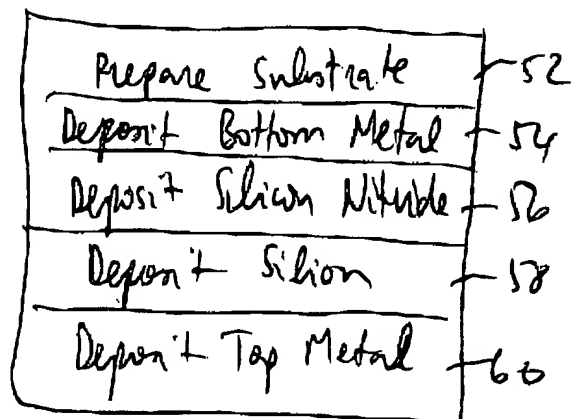 Prepare Substrate 52
Deposit Bottom Metal 54
Deposit Silicon Nitride 56
Deposit Silicon 58
Deposit Top Metal 60